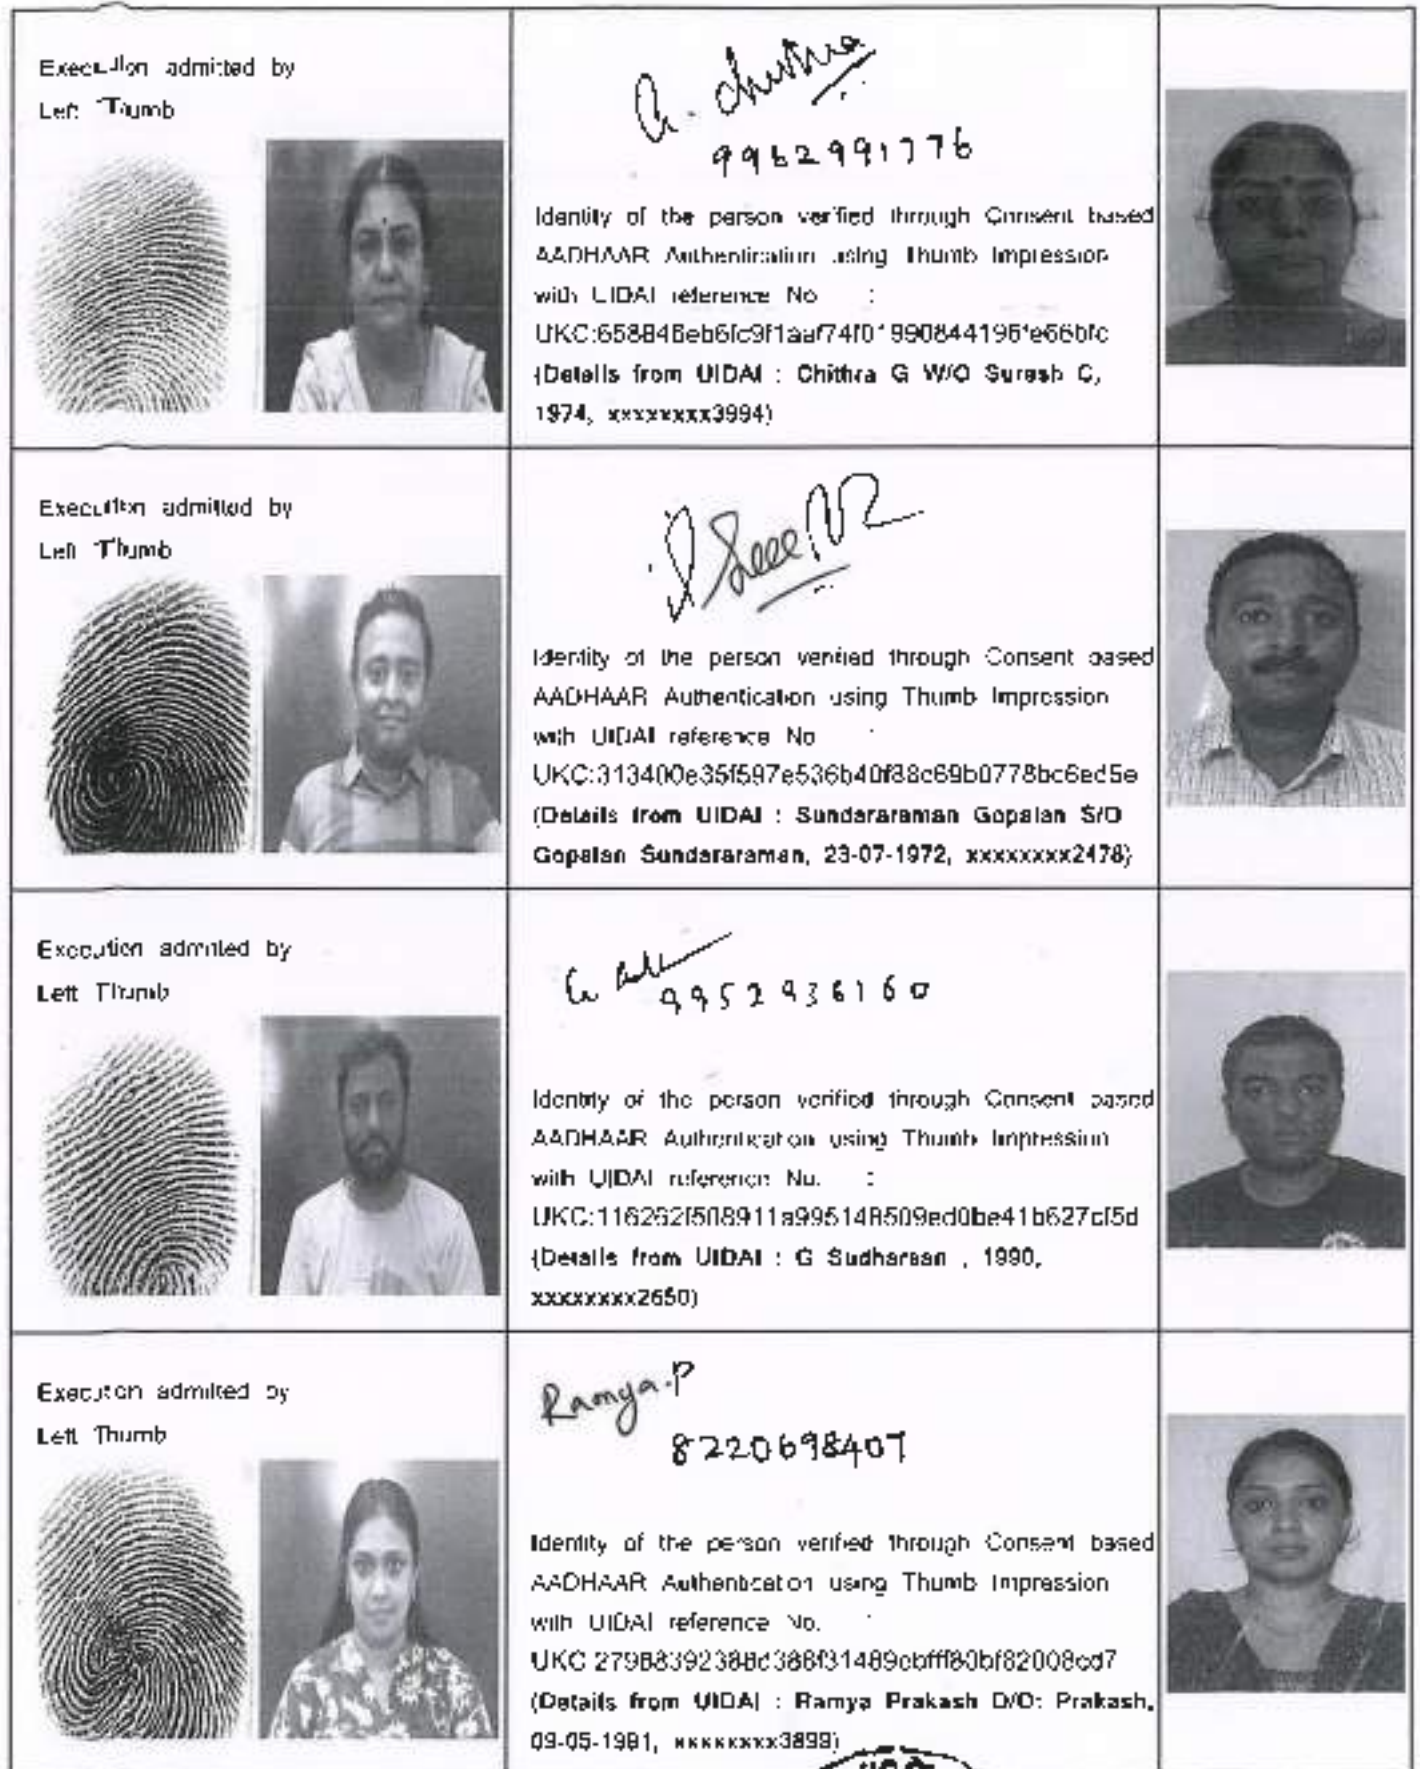 Execution admitted by
Left Thumb
G. Chithra
9962991776
Identity of the person verified through Consent based
AADHAAR Authentication using Thumb Impression
with UIDAI reference No :
(Details from UIDAI : Chithra G W/O Suresh C,
1974, xxxxxxxx3994)
Execution admitted by
Left Thumb
Identity of the person verified through Consent based
AADHAAR Authentication using Thumb Impression
with UIDAI reference No :
UKC:313400e35f597e536b40f88c69b0778bc6ed5e
(Details from UIDAI : Sundararaman Gopalan S/O
Gopalan Sundararaman, 23-07-1972, xxxxxxxx2478)
Execution admitted by
Left Thumb
9952936160
Identity of the person verified through Consent based
AADHAAR Authentication using Thumb Impression
with UIDAI reference No. :
(Details from UIDAI : G Sudharsan , 1990,
xxxxxxxx2650)
Execution admitted by
Left Thumb
Ramya.P
8220698407
Identity of the person verified through Consent based
AADHAAR Authentication using Thumb Impression
with UIDAI reference No. :
(Details from UIDAI : Ramya Prakash D/O: Prakash,
09-05-1991, xxxxxxxx3899)